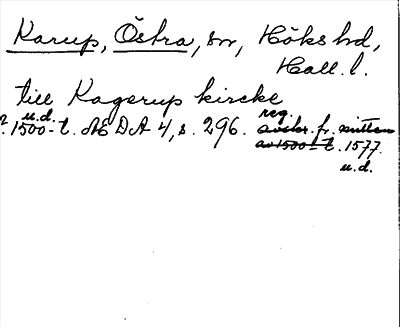 Karup, Östra, sn, Höks hd,
Hall. l.
till Kagerup kircke
u.d.
? 1500-t. ÆDA 4, s. 296.
reg.
avskr. fr. mitten
av 1500-t. 1577.
u.d.